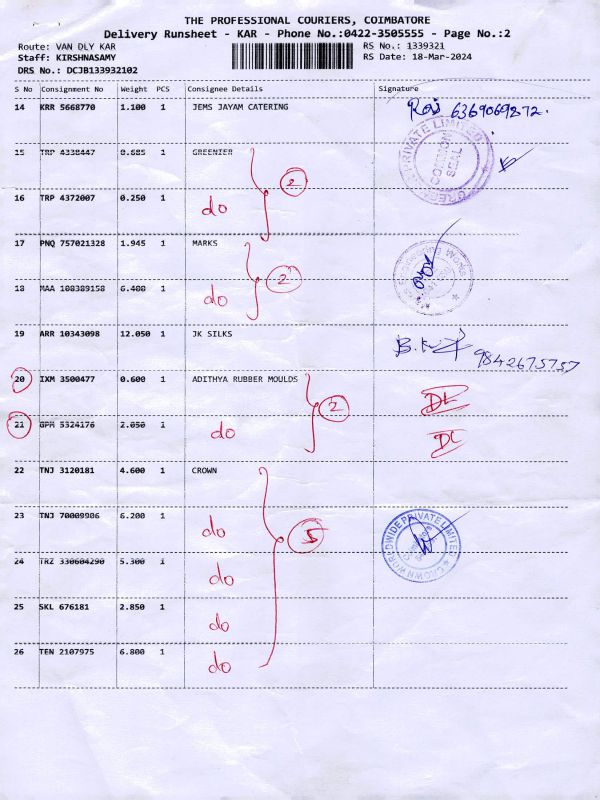 THE PROFESSIONAL COURIERS, COIMBATORE
Delivery Runsheet - KAR - Phone No.:0422-3505555 - Page No.:2
Route: VAN DLY KAR RS No.: 1339321
Staff: KIRSHNASAMY RS Date: 18-Mar-2024
DRS No.: DCJB133932102
S No Consignment No Weight PCS Consignee Details Signature
14 KRR 5668770 1.100 1 JEMS JAYAM CATERING 6369069872.
PRIVATE LIMITED
COMMON SEAL
15 TRP 4338447 0.685 1 GREENIER
2
16 TRP 4372007 0.250 1 do
17 PNQ 757021328 1.945 1 MARKS
2
18 MAA 108389158 6.400 1 do
19 ARR 10343098 12.050 1 JK SILKS 9842675757
20 IXM 3500477 0.600 1 ADITHYA RUBBER MOULDS
2
21 GPM 5324176 2.050 1 do
22 TNJ 3120181 4.600 1 CROWN
23 TNJ 70009906 6.200 1 do
5
CROWN WORLDWIDE PRIVATE LIMITED
24 TRZ 330604290 5.300 1 do
25 SKL 676181 2.850 1 do
26 TEN 2107975 6.800 1 do